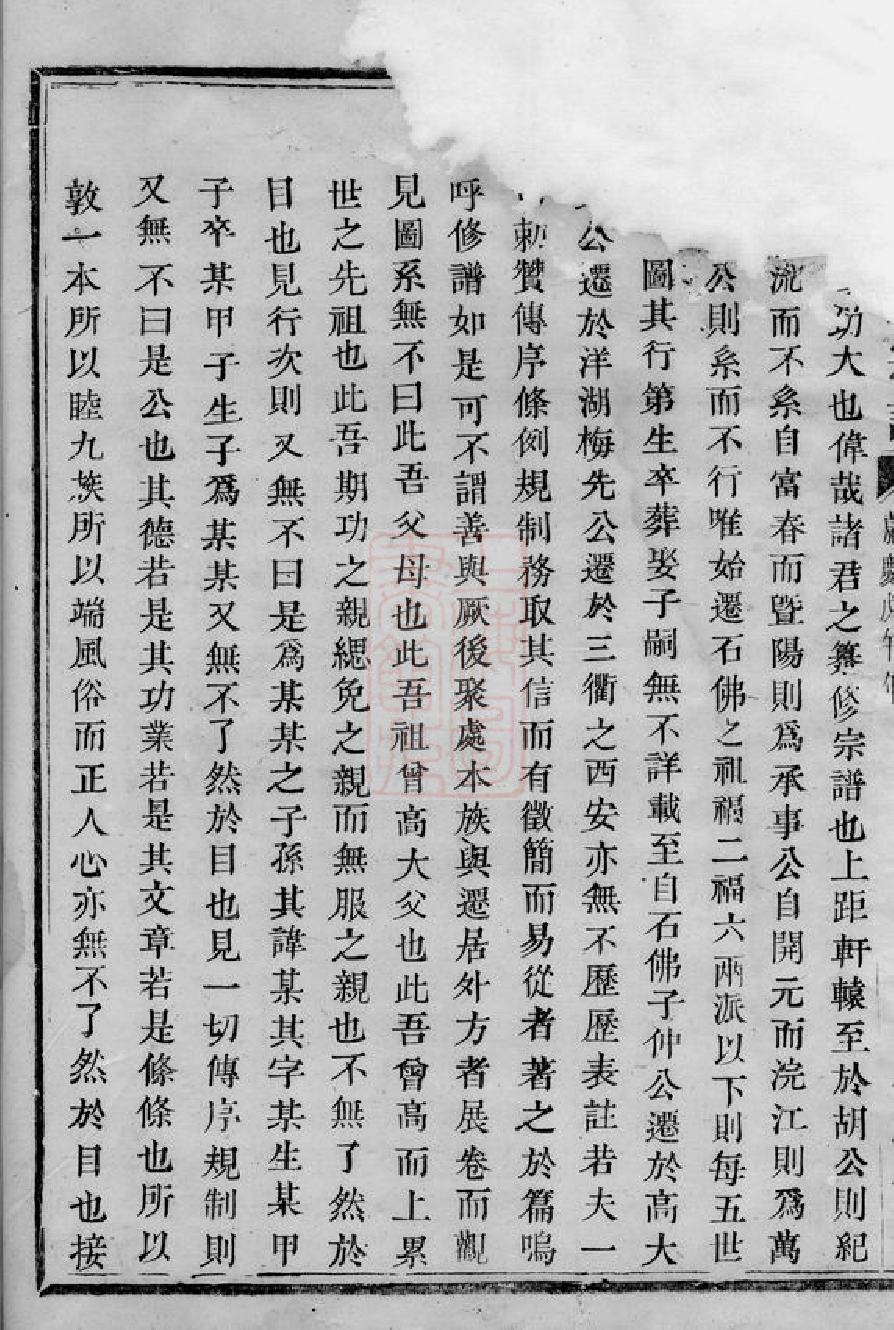 功大也偉哉諸君之纂修宗譜也上距軒轅至於胡公則紀
流而不系自富春而暨陽則爲承事公自開元而浣江則爲萬
公則系而不行唯始遷石佛之祖福二福六兩派以下則每五世
圖其行第生卒葬娶子嗣無不詳載至自石佛子仲公遷於高大
公遷於洋湖梅先公遷於三衢之西安亦無不歷歷表註若夫一
勅贊傳序條例規制務取其信而有徵簡而易從者著之於篇嗚
呼修譜如是可不謂善與厥後聚處本族與遷居外方者展卷而觀
見圖系無不曰此吾父母也此吾祖曾高大父也此吾曾高而上累
世之先祖也此吾期功之親緦免之親而無服之親也不無了然於
目也見行次則又無不曰是爲某某之子孫其諱某其字某生某甲
子卒某甲子生子爲某某又無不了然於目也見一切傳序規制則
又無不曰是公也其德若是其功業若是其文章若是條條也所以
敦一本所以睦九族所以端風俗而正人心亦無不了然於目也接